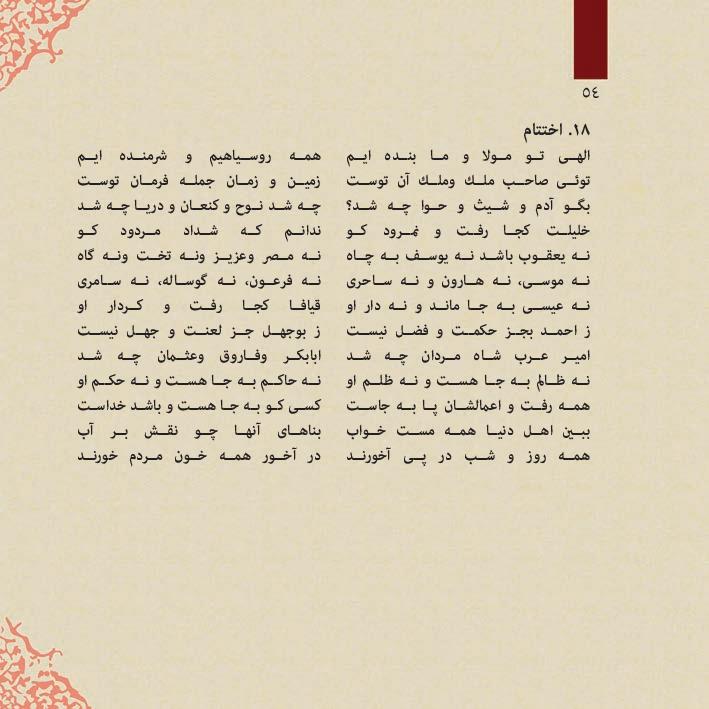 ٥٤
١٨. اختتام
الهی تو مولا و ما بنده ایم همه روسیاهیم و شرمنده ایم
توئی صاحب ملك وملك آن توست زمین و زمان جمله فرمان توست
بگو آدم و شیث و حوا چه شد؟ چه شد نوح و کنعان و دریا چه شد
خلیلت کجا رفت و نمرود کو ندانم که شداد مردود کو
نه یعقوب باشد نه یوسف به چاه نه مصر وعزیز ونه تخت ونه گاه
نه موسی، نه هارون و نه ساحری نه فرعون، نه گوساله، نه سامری
نه عیسی به جا ماند و نه دار او قیافا کجا رفت و کردار او
ز احمد بجز حکمت و فضل نیست ز بوجهل جز لعنت و جهل نیست
امیر عرب شاه مردان چه شد ابابکر وفاروق وعثمان چه شد
نه ظالم به جا هست و نه ظلم او نه حاکم به جا هست و نه حکم او
همه رفت و اعمالشان پا به جاست کسی کو به جا هست و باشد خداست
ببین اهل دنیا همه مست خواب بناهای آنها چو نقش بر آب
همه روز و شب در پی آخورند در آخور همه خون مردم خورند